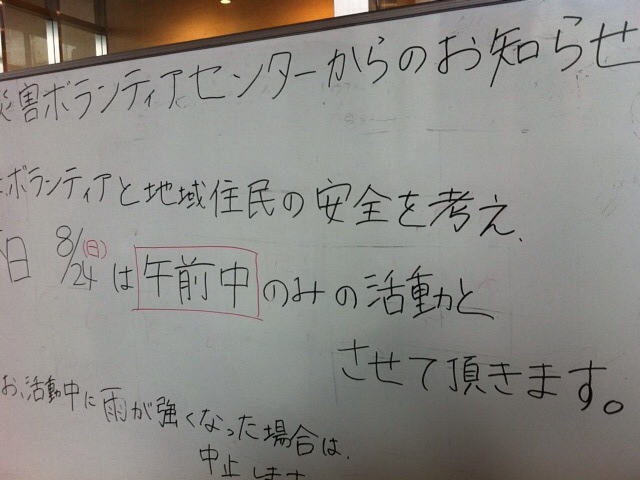 災害ボランティアセンターからのお知らせ
ボランティアと地域住民の安全を考え、
日 8/24(日)は午前中のみの活動と
させて頂きます。
お、活動中に雨が強くなった場合は、
中止します